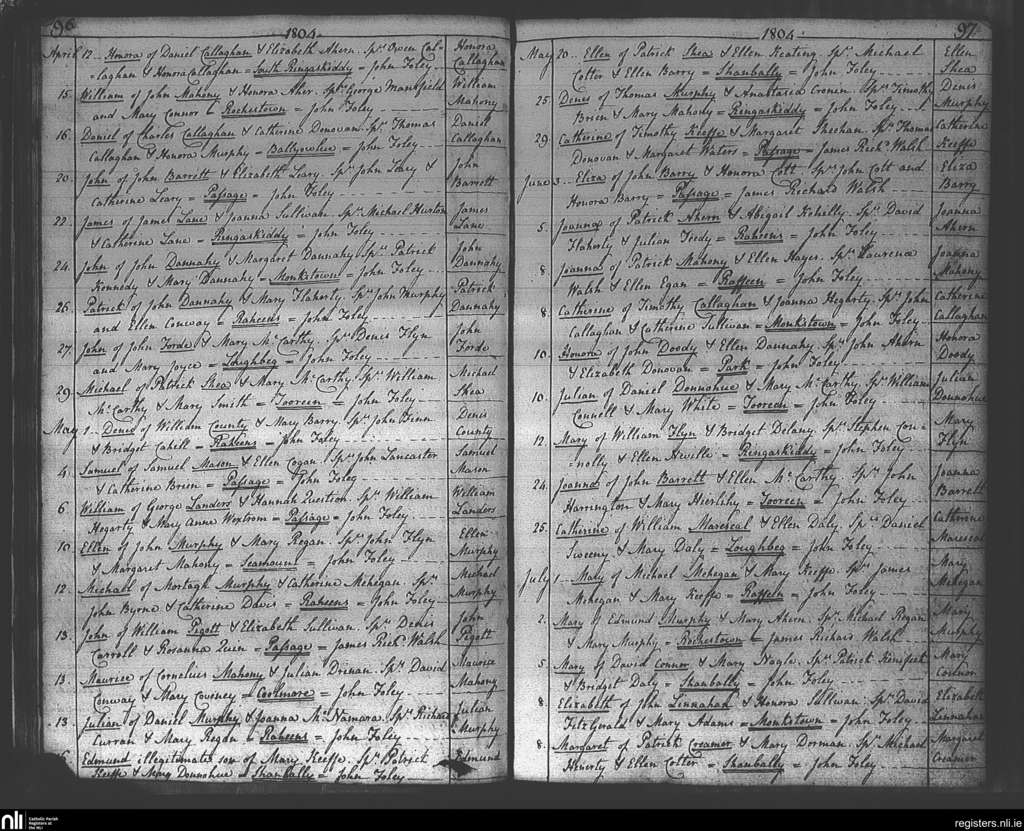 96
1804
April 12 Honora of Daniel Callaghan & Elizabeth Ahern. Sprs Owen Cal-
=laghan & Honora Callaghan = South Ringaskiddy = John Foley
Honora
Callaghan
15. William of John Mahony & Honora Aher. Sprs George Mansfield
and Mary Connor = Rochestown = John Foley
William
Mahony
16. Daniel of Charles Callaghan & Catherine Donovan. Sprs Thomas
Callaghan & Honora Murphy = = John Foley
Daniel
Callaghan
20. John of John Barrett & Elizabeth Leary. Sprs John Leary &
Catherine Leary = Passage = John Foley
John
Barrett
22. James of James Lane & Joanna Sullivan. Sprs Michael
& Catherine Lane = Ringaskiddy = John Foley
James
Lane
24. John of John Dannahy & Margaret Dannahy. Sprs Patrick
Kennedy & Mary Dannahy = Monkstown = John Foley
John
Dannahy
26. Patrick of John Dannahy & Mary Flaherty. Sprs John Murphy
and Ellen Conway = Raheens = John Foley
Patrick
Dannahy
27. John of John Forde & Mary McCarthy. Sprs Denis Flyn
and Mary Joyce = Loughbeg = John Foley
John
Forde
29. Michael of Patrick Shea & Mary McCarthy. Sprs William
McCarthy & Mary Smith = Tooreen = John Foley
Michael
Shea
May 1. Denis of William County & Mary Barry. Sprs John Finn
& Bridget Cahill = Raheens = John Foley
Denis
County
4. Samuel of Samuel Mason & Ellen Cogan. Sprs John Lancaster
& Catherine Brien = Passage = John Foley
Samuel
Mason
6. William of George Landers & Hannah. Sprs William
Hegarty & Mary Anne = Passage = John Foley
William
Landers
10. Ellen of John Murphy & Mary Regan. Sprs John Flyn
& Margaret Mahony = Seamount = John Foley
Ellen
Murphy
12. Michael of Mortagh Murphy & Catherine Mehegan. Sprs
John Byrne & Catherine Davis = Raheens = John Foley
Michael
Murphy
13. John of William Pigott & Elizabeth Sullivan. Sprs Denis
Carroll & Rosanna = Passage = James Richd Walsh
John
Pigott
13. Maurice of Cornelius Mahony & Julian Drinan. Sprs David
Conway & Mary Coveney = Coolmore = John Foley
Maurice
Mahony
13. Julian of Daniel Murphy & Joanna McNamara. Sprs Richard
Curran & Mary Regan = Raheens = John Foley
Julian
Murphy
Edmund illegitimate son of Mary Keeffe. Sprs Patrick
Keeffe & Mary Donnohue = Shanbally = John Foley
Edmund
97
1804
May 20. Ellen of Patrick Shea & Ellen Keating. Sprs Michael
Cotter & Ellen Barry = Shanbally = John Foley
Ellen
Shea
25. Denis of Thomas Murphy & Anastasia Cronen. Sprs Timothy
Brien & Mary Mahony = Ringaskiddy = John Foley
Denis
Murphy
29. Catherine of Timothy Keeffe & Margaret Sheehan. Sprs Thomas
Donovan & Margaret Waters = Passage = James Richd Walsh
Catherine
Keeffe
June 3. Eliza of John Barry & Honora Cott. Sprs John Cott and
Honora Barry = Passage = James Richard Walsh
Eliza
Barry
5. Joanna of Patrick Ahern & Abigail Kehilly. Sprs David
Flaherty & Julian = Raheens = John Foley
Joanna
Ahern
8. Joanna of Patrick Mahony & Ellen Hayes. Sprs Laurence
Walsh & Ellen Egan = Raffeen = John Foley
Joanna
Mahony
8. Catherine of Timothy Callaghan & Joanna Hegarty. Sprs John
Callaghan & Catherine Sullivan = Monkstown = John Foley
Catherine
Callaghan
10. Honora of John Doody & Ellen Dannahy. Sprs John Ahern
& Elizabeth Donovan = Park = John Foley
Honora
Doody
10. Julian of Daniel Donnohue & Mary McCarthy. Sprs William
Connell & Mary White = Tooreen = John Foley
Julian
Donnohue
12. Mary of William Flyn & Bridget Delany. Sprs Stephen Con-
=nolly & Ellen Neville = Ringaskiddy = John Foley
Mary
Flyn
24. Joanna of John Barrett & Ellen McCarthy. Sprs John
Harrington & Mary Hierlihy = Tooreen = John Foley
Joanna
Barrett
25. Catherine of William Marescal & Ellen Daly. Sprs Daniel
Sweeny & Mary Daly = Loughbeg = John Foley
Catherine
Marescal
July 1. Mary of Michael Mehegan & Mary Keeffe. Sprs James
Mehegan & Mary Keeffe = Raffeen = John Foley
Mary
Mehegan
2. Mary of Edmund Murphy & Mary Ahern. Sprs Michael Regan
& Mary Murphy = Rochestown = James Richard Walsh
Mary
Murphy
5. Mary of David Connor & Mary Nagle. Sprs Patrick Kenifeck
& Bridget Daly = Shanbally = John Foley
Mary
Connor
8. Elizabeth of John Linnahan & Honora Sullivan. Sprs David
FitzGerald & Mary Adams = Monkstown = John Foley
Elizabeth
Linnahan
8. Margaret of Patrick Creamer & Mary Dorman. Sprs Michael
Henerty & Ellen Cotter = Shanbally = John Foley
Margaret
Creamer
nli
Catholic Parish
Registers at
the NLI
registers.nli.ie